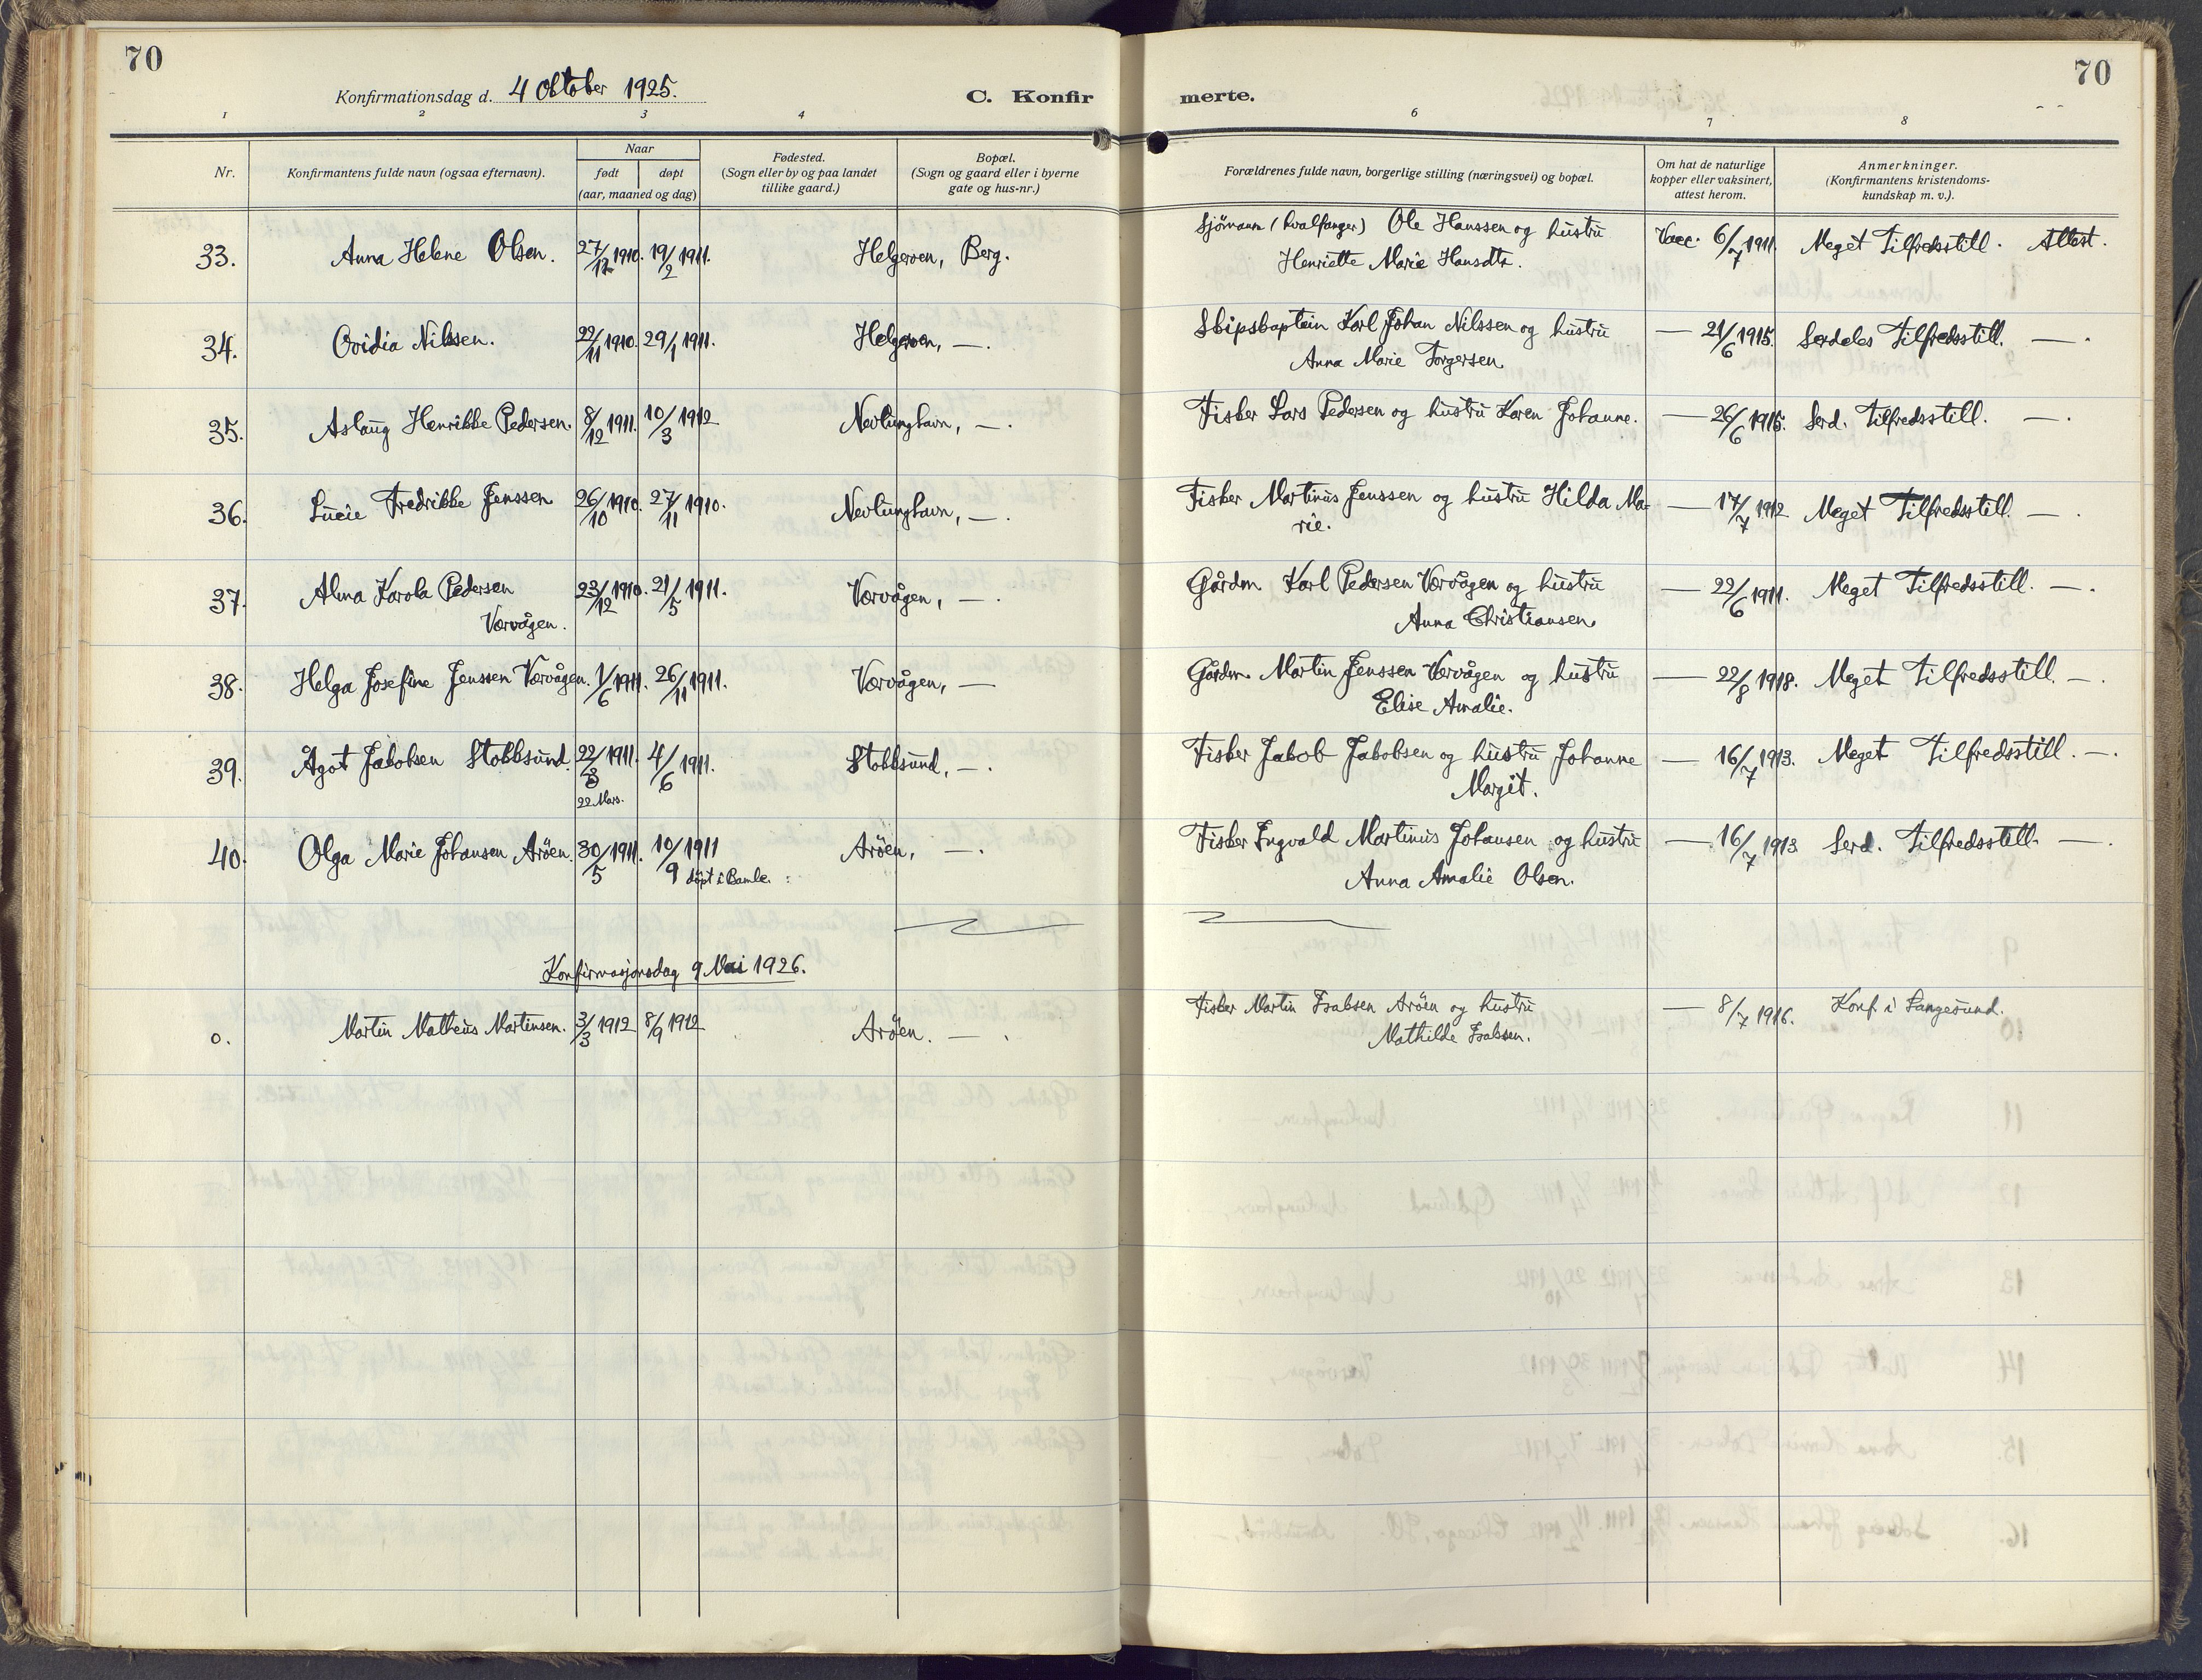 70
Konfirmationsdag d. 4 Oktober 1925.
C. Konfir
merte.
70
1 2 3 4
6 7 8
Nr.
Konfirmantens fulde navn (ogsaa efternavn).
Naar
født døpt
(aar, maaned og dag)
Fødested.
(Sogn eller by og paa landet
tillike gaard.)
Bopæl.
(Sogn og gaard eller i byerne
gate og hus-nr.)
Forældrenes fulde navn, borgerlige stilling (næringsvei) og bopæl.
Om hat de naturlige
kopper eller vaksinert,
attest herom.
Anmerkninger.
(Konfirmantens kristendoms-
kundskap m. v.).
33. Anna Helene Olsen. 27/12 1910. 19/2 1911. Helgeroen, Berg. Sjömann (hvalfanger) Ole Hanssen og hustru Vacc. 6/7 1911. Meget Tilfredsstill. Attest.
Henriette Marie Hansdtr.
34. Ovidia Nilssen. 22/11 1910. 29/1 1911. Helgeroen, —. Skipskaptein Karl Johan Nilssen og hustru — 21/6 1915. Serdeles Tilfredsstill. —.
Anna Marie Torgersen.
35. Aslaug Henrikke Pedersen. 8/12 1911. 10/3 1912 Nevlunghavn, —. Fisker Lars Pedersen og hustru Karen Johanne. — 26/6 1915. Serd. Tilfredsstill. —.
36. Lucie Fredrikke Jenssen 26/10 1910. 27/11 1910. Nevlunghavn, —. Fisker Martinus Jenssen og hustru Hilda Ma- — 17/7 1912 Meget Tilfredsstill. —.
rie.
37. Alma Karola Pedersen 23/12 1910. 21/5 1911. Værvågen, —. Gårdm. Karl Pedersen Værvågen og hustru — 22/6 1911. Meget Tilfredsstill. —.
Værvågen. Anna Christiansen.
38. Helga Josefine Jenssen Værvågen. 1/6 1911. 26/11 1911. Værvågen, — Gårdm. Martin Jenssen Værvågen og hustru — 22/8 1918. Meget Tilfredsstill. —.
Elise Amalie.
39. Ågot Jakobsen Stokksund. 22/3 1911. 4/6 1911. Stokksund, —. Fisker Jakob Jakobsen og hustru Johanne — 16/7 1913. Meget Tilfredsstill. —.
22 Mars. Margit.
40. Olga Marie Johansen Aröen. 30/5 1911. 10/9 1911 Aröen, —. Fisker Ingvald Martinus Johansen og hustru — 16/7 1913 Serd. Tilfredsstill. —.
döpt i Bamle. Anna Amalie Olsen.
Konfirmasjonsdag 9 Mai 1926.
0. Martin Matheus Martinsen. 3/3 1912 8/9 1912 Aröen. — Fisker Martin Isaksen Aröen og hustru — 8/7 1916. Konf. i Langesund.
Mathilde Isaksen.